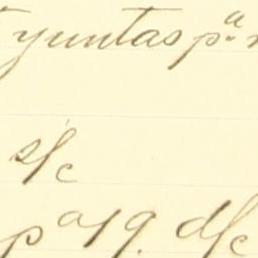 yuntas pª
s/c
pª/9. d/c